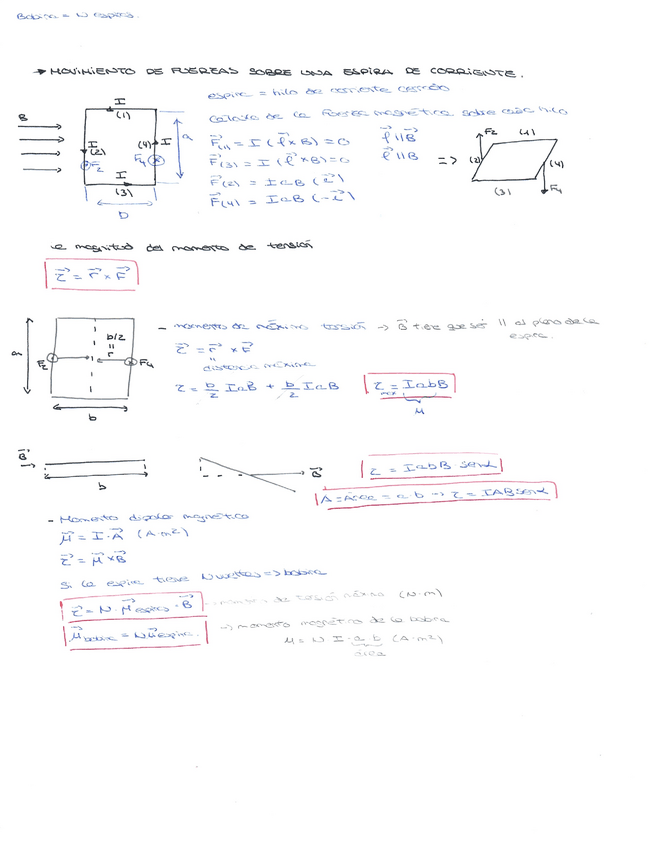 Bobina = N espiras.
→ MOVIMIENTO DE FUERZAS SOBRE UNA ESPIRA DE CORRIENTE.
espira = hilo de corriente cerrado
Cálculo de la fuerza magnética sobre cada hilo
B
I
(1)
I
(2)
F2
(4)
I
F4
I
(3)
a
D
F(1) = I (l × B) = 0   l || B
F(3) = I (l × B) = 0   l || B
F(2) = I a B (i)
F(4) = I a B (-i)
=>
F2
(1)
(2)
(4)
(3)
F4
la magnitud del momento de tensión
τ = r × F
a
F2
b/2
r
F4
b
- momento de máximo torsión → B tiene que ser || al plano de la espira.
τ = r × F
distancia máxima
τ = b/2 I a B + b/2 I a B
τ max = I a b B
μ
B
b
B
τ = I a b B senα
A = Área = a·b → τ = I A B senα
- Momento dipolar magnético
μ = I · A (A·m²)
τ = μ × B
Si la espira tiene N vueltas => bobina
τ = N · μ espira · B
momento de torsión máximo (N·m)
μ bobina = N μ espira.
→ momento magnético de la bobina
μ = N I · a · b (A·m²)
área